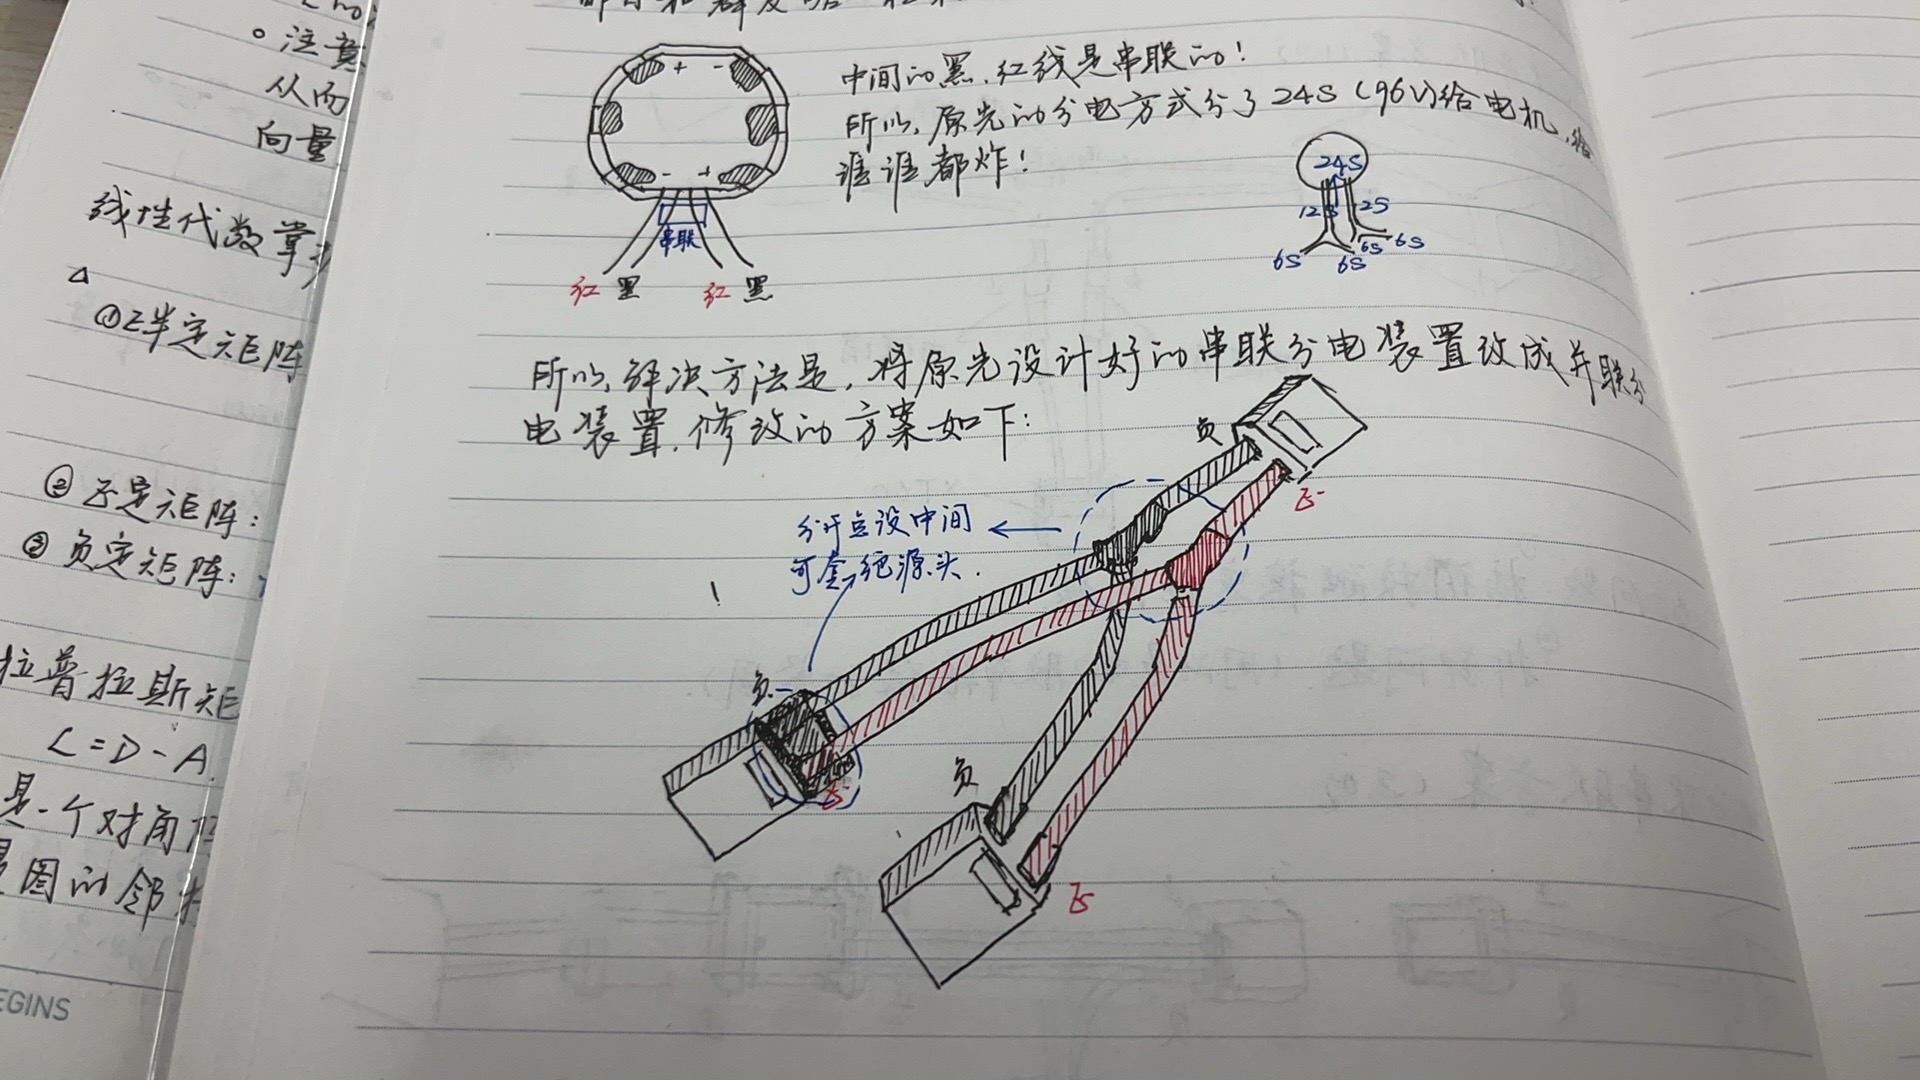 注意
从而
向量
线性代数掌
△
①正半定矩阵
②正定矩阵：
③负定矩阵：
拉普拉斯矩
L=D-A.
是一个对角阵
是图的邻
EGINS
+ -
- +
串联
红 黑 红 黑
中间的黑、红线是串联的！
所以，原先的分电方式分了24S(96V)给电机，给
谁谁都炸！
24S
12S 12S
6S 6S 6S 6S
所以，解决方法是，将原先设计好的串联分电装置改成并联分
电装置，修改的方案如下：
负
正
分开点设中间
可套
源头.
负
正
负
正